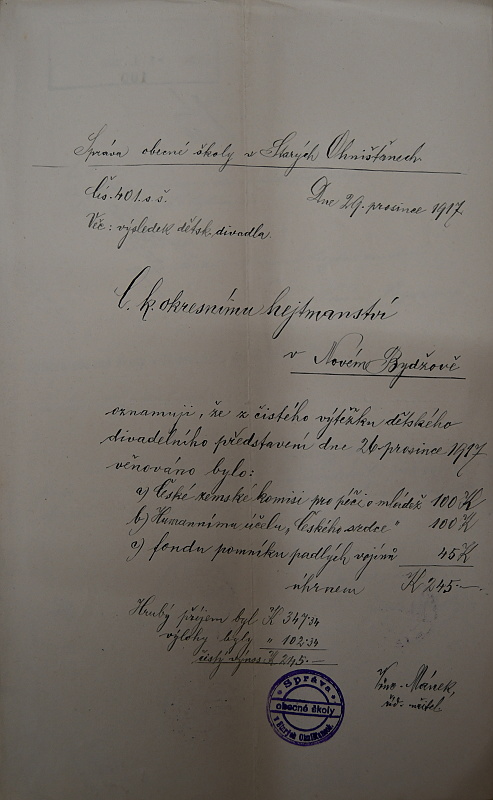 Správa obecné školy v Starých Ohništěnech.
Čís. 401. s š.
Dne 29. prosince 1917.
Věc: výsledek dětsk. divadla.
C. k. okresnímu hejtmanství
v Novém Bydžově
oznamuji, že z čistého výtěžku dětského
divadelního představení dne 26. prosince 1917
věnováno bylo:
a) České zemské komisi pro péči o mládež 100 K
b) Humannímu účelu „Českého srdce" 100 K
c) fondu pomníku padlých vojínů 45 K
úhrnem K 245.—
Hrubý příjem byl K 347.34
výlohy byly „ 102.34
čistý výnos K 245.—
Správa
obecné školy
v Starých Ohništěnech.
Mánek,
říd. učitel.